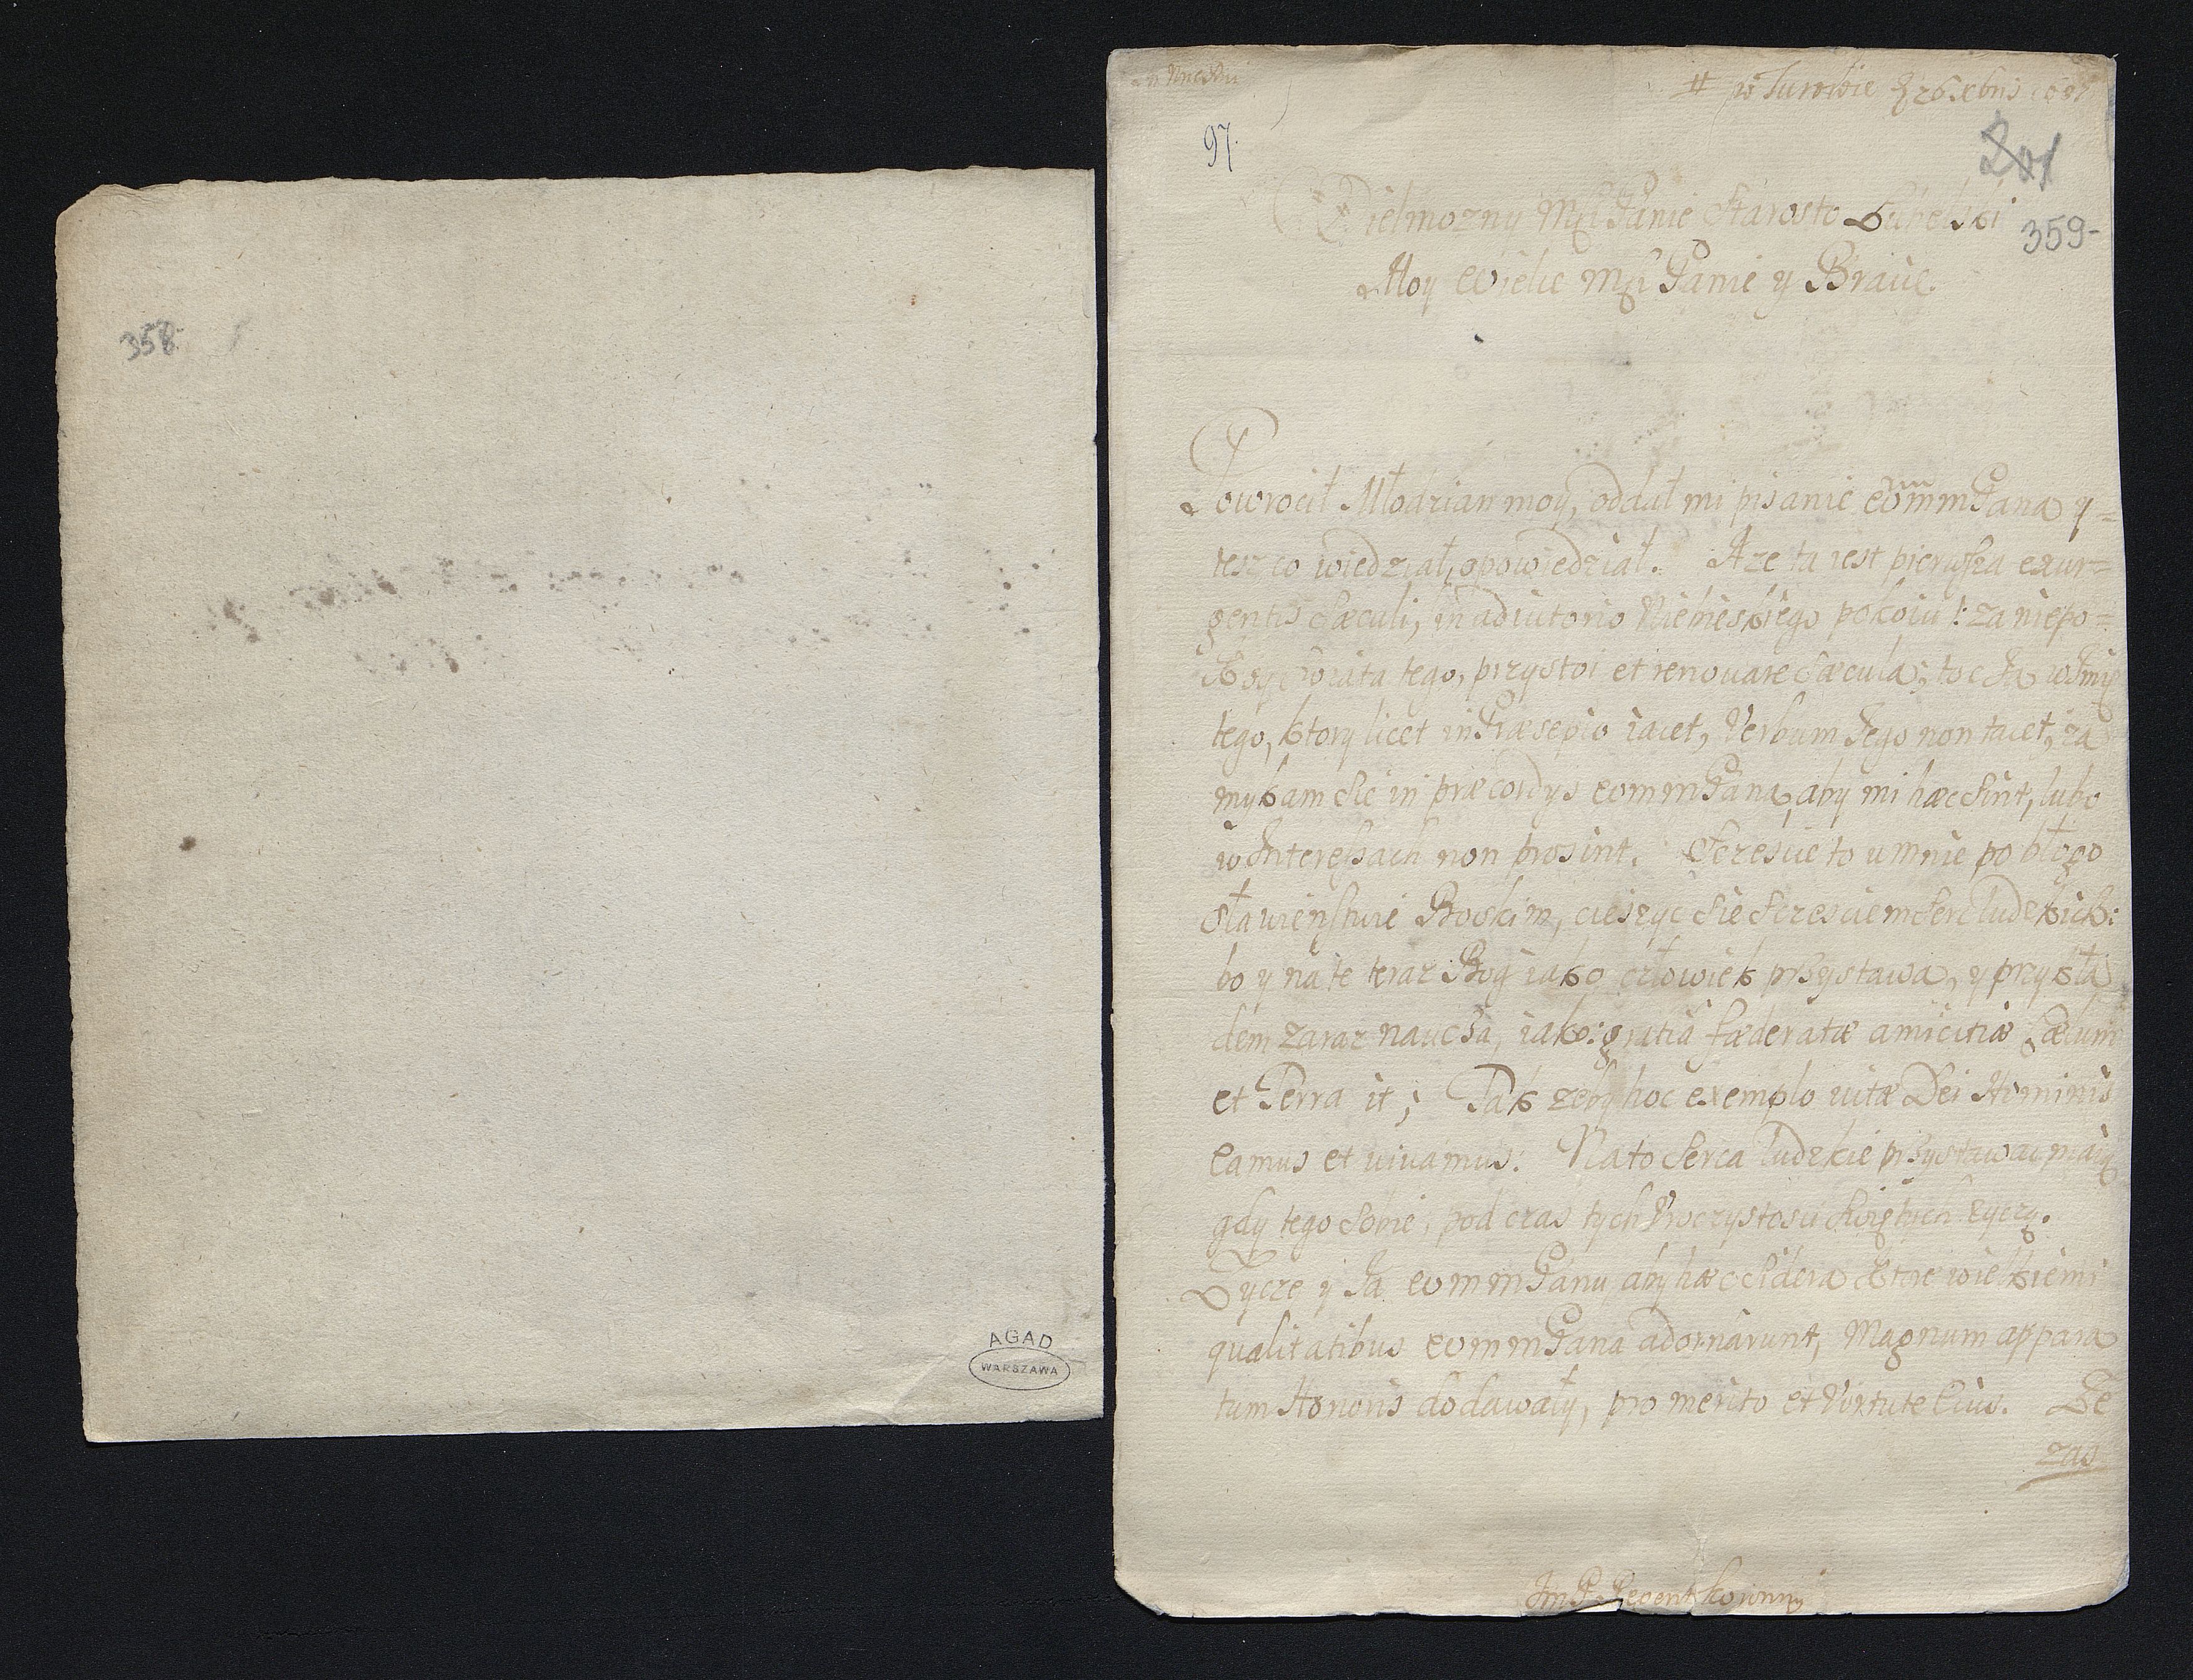 358
AGAD
WARSZAWA
# w Turobie 26 Xbris
97.
201
359-
Wielmozny Mći Panie Starosto
Moy Wielce Mći Panie y Bracie
Powrocił Młodzian moy, oddał mi pisanie WMMPana y=
tesz co wiedział, opowiedział. A ze ta iest pierwsza exur=
gentis sæculi, in adiutorio Niebieskiego pokoiu! za niepo=
koy swiata tego, przystoi et renovare sæcula; toć Ja w Imię
tego, ktory licet in Præsepio iacet, Verbum Jego non tacet, za
mykam sie in præcordys WMMPana, aby mi hæc sint, lubo
w Interessach non prosint. Sczescie to u mnie po błogo
sławienstwie Boskim, cieszyc sie sczesciem serc ludzkich:
bo y na te teraz Bog iako człowiek przystawa, y przykła
dem zaraz naucza, iako: gratia fæderatæ amicitiæ Cælum
et Terra it; Tak zeby hoc exemplo vitæ Dei Hominis
eamus et vivamus. Na to serca ludzkie przystawac maią
gdy tego sobie, pod czas tych Uroczystosci swiętych zyczą.
Zycze y Ja WMMPanu, aby hæc sidera ktore wielkiemi
qualitatibus WMMPana adornarunt, Magnum appara
tum Honoris dodawały, pro merito et Virtute Eius. Ze
zas
JmP Regent Koronny